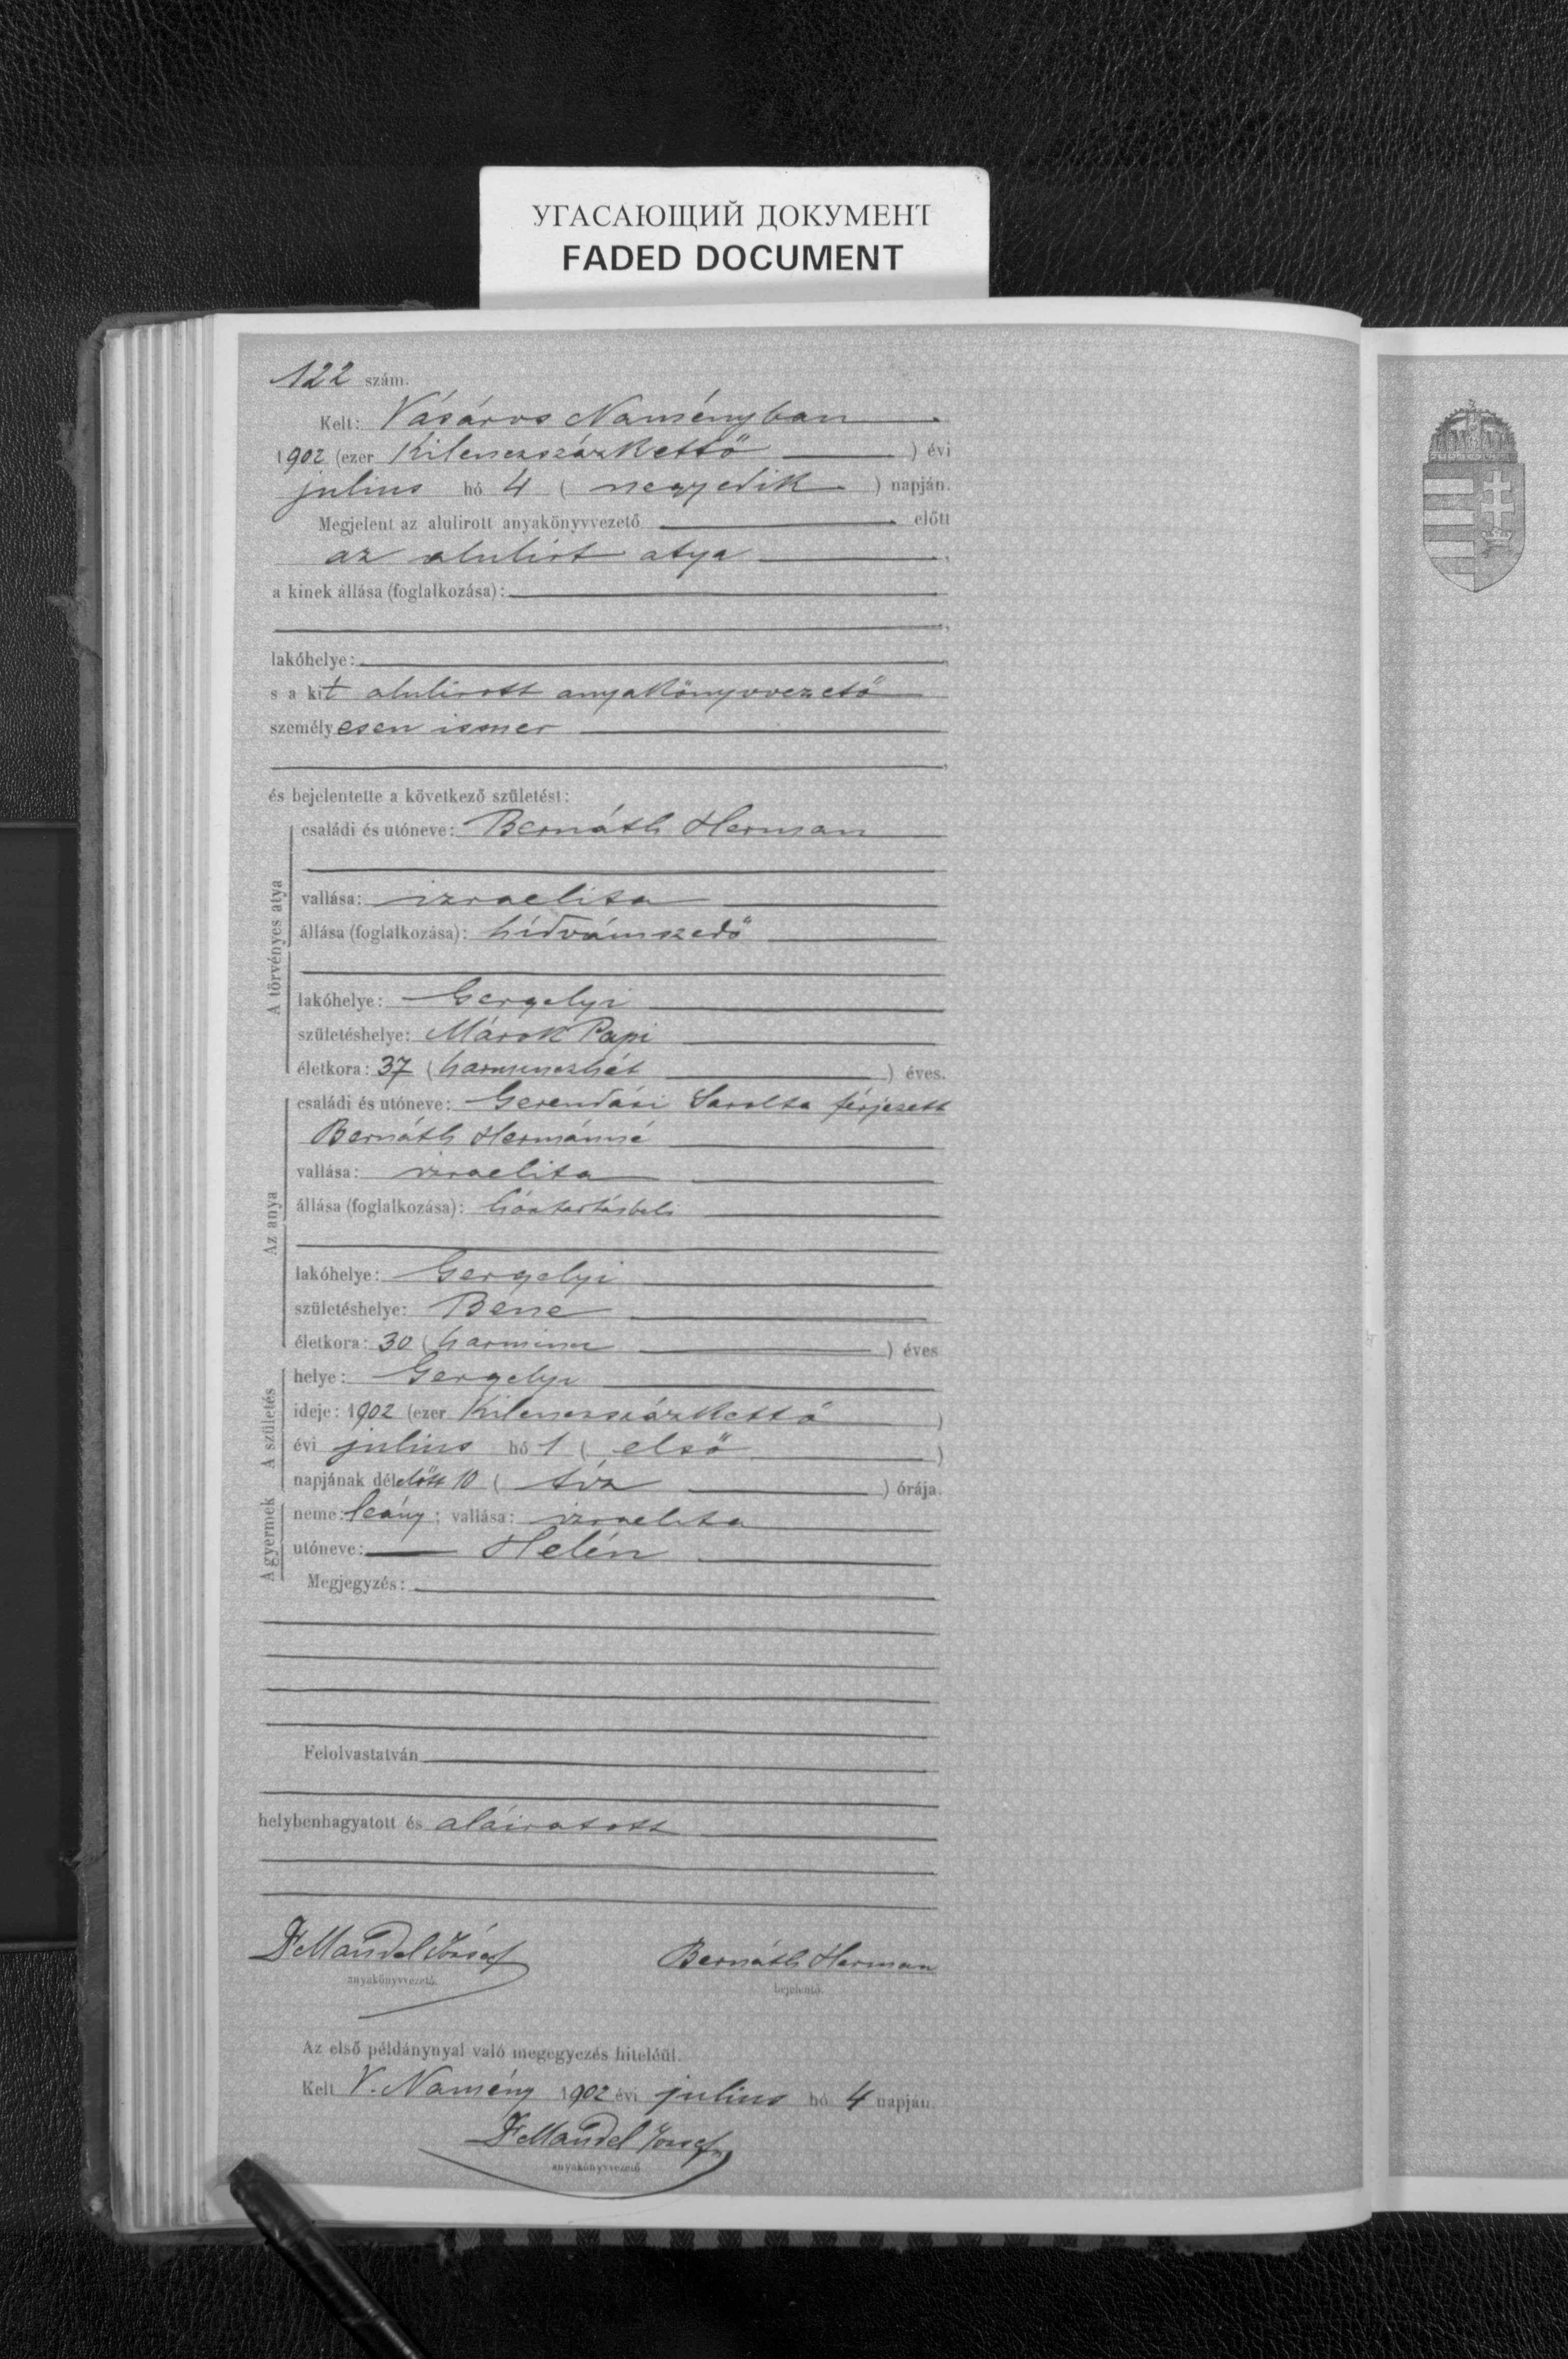 УГАСАЮЩИЙ ДОКУМЕНТ
FADED DOCUMENT
122 szám.
Kelt: Vásáros Naményban
1902 (ezer Kilenczszázkettő) évi
julius hó 4 (negyedik) napján.
Megjelent az alulirott anyakönyvvezető előtt
az alulirt atya
a kinek állása (foglalkozása):
lakóhelye:
s a kit alulirott anyakönyvvezető
személyesen ismer
és bejelentette a következő születést:
A törvényes atya
családi és utóneve: Bernáth Herman
vallása: izraelita
állása (foglalkozása): hídvámszedő
lakóhelye: Gergelyi
születéshelye: Márok Papi
életkora: 37 (harminczhét) éves.
Az anya
családi és utóneve: Gerendási Sarolta férjezett
Bernáth Hermánné
vallása: izraelita
állása (foglalkozása): háztartásbeli
lakóhelye: Gergelyi
születéshelye: Bene
életkora: 30 (harmincz) éves
A születés
helye: Gergelyi
ideje: 1902 (ezer Kilenczszázkettő)
évi julius hó 1 (első)
napjának délelőtt 10 (tíz) órája.
A gyermek
neme: leány; vallása: izraelita
utóneve: Helén
Megjegyzés:
Felolvastatván
helybenhagyatott és aláiratott
Dr Mandel József
anyakönyvvezető.
Bernáth Herman
bejelentő.
Az első példánynyal való megegyezés hiteléül.
Kelt V. Namény 1902 évi julius hó 4 napján.
Dr Mandel József
anyakönyvvezető